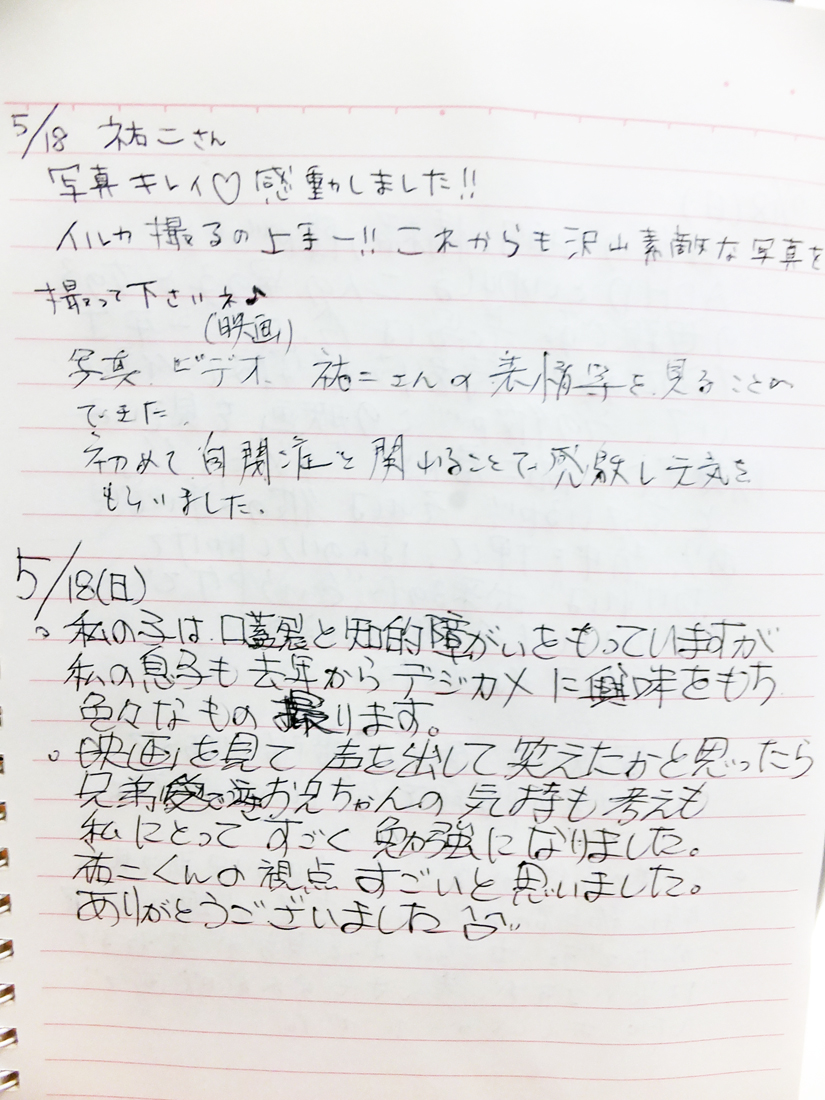 5/18 祐二さん
写真キレイ♡感動しました!!
イルカ撮るの上手ー!!これからも沢山素敵な写真を
撮って下さいネ♪
(映画)
写真、ビデオ、祐二さんの表情等を見ることの
できた。
初めて自閉症と関わることで感激し元気を
もらいました。
5/18(日)
。私の子は、口蓋裂と知的障がいをもっていますが
私の息子も去年からデジカメに興味をもち
色々なもの撮ります。
。映画を見て声を出して笑えたかと思ったら
兄弟愛でお兄ちゃんの気持も考えも
私にとってすごく勉強になりました。
祐二くんの視点すごいと思いました。
ありがとうございました